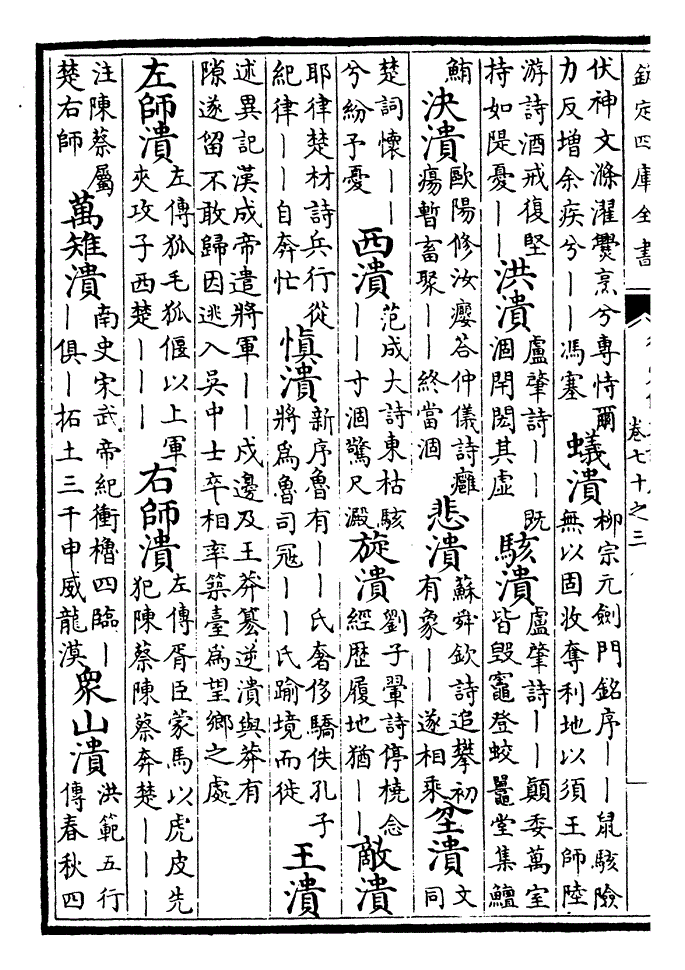 欽定四庫全書
卷七十之三
伏神文滌濯爨烹兮專恃爾
力反增余疾兮——馮塞
蟻潰
柳宗元劍門銘序——鼠駭險
無以固收奪利地以須王師陸
游詩酒戒復堅
持如隄憂——
洪潰
盧肇詩——既
涸閈閎其虛
駭潰
盧肇詩——顛委萬室
皆毀竈登蛟鼉堂集鱣
鮪
決潰
歐陽修汝癭荅仲儀詩癰
瘍暫畜聚——終當涸
悲潰
蘇舜欽詩追攀初
有象——遂相乘
坌潰
文
同
楚詞懷——
兮紛予憂
西潰
范成大詩東枯駭
——寸涸驚尺澱
旋潰
劉子翬詩停橈念
經歴履地猶——
敵潰
耶律楚材詩兵行從
紀律——自奔忙
慎潰
新序魯有——氏奢侈驕佚孔子
將爲魯司冦——氏踰境而徙
王潰
述異記漢成帝遣將軍——戍邊及王莽簒逆潰與莽有
隙遂留不敢歸因逃入吳中士卒相率築臺爲望鄉之處
左師潰
左傳狐毛狐偃以上軍
夾攻子西楚———
右師潰
左傳胥臣蒙馬以虎皮先
犯陳蔡陳蔡奔楚———
注陳蔡屬
楚右師
萬雉潰
南史宋武帝紀衝櫓四臨—
—俱—拓土三千申威龍漠
衆山潰
洪範五行
傳春秋四